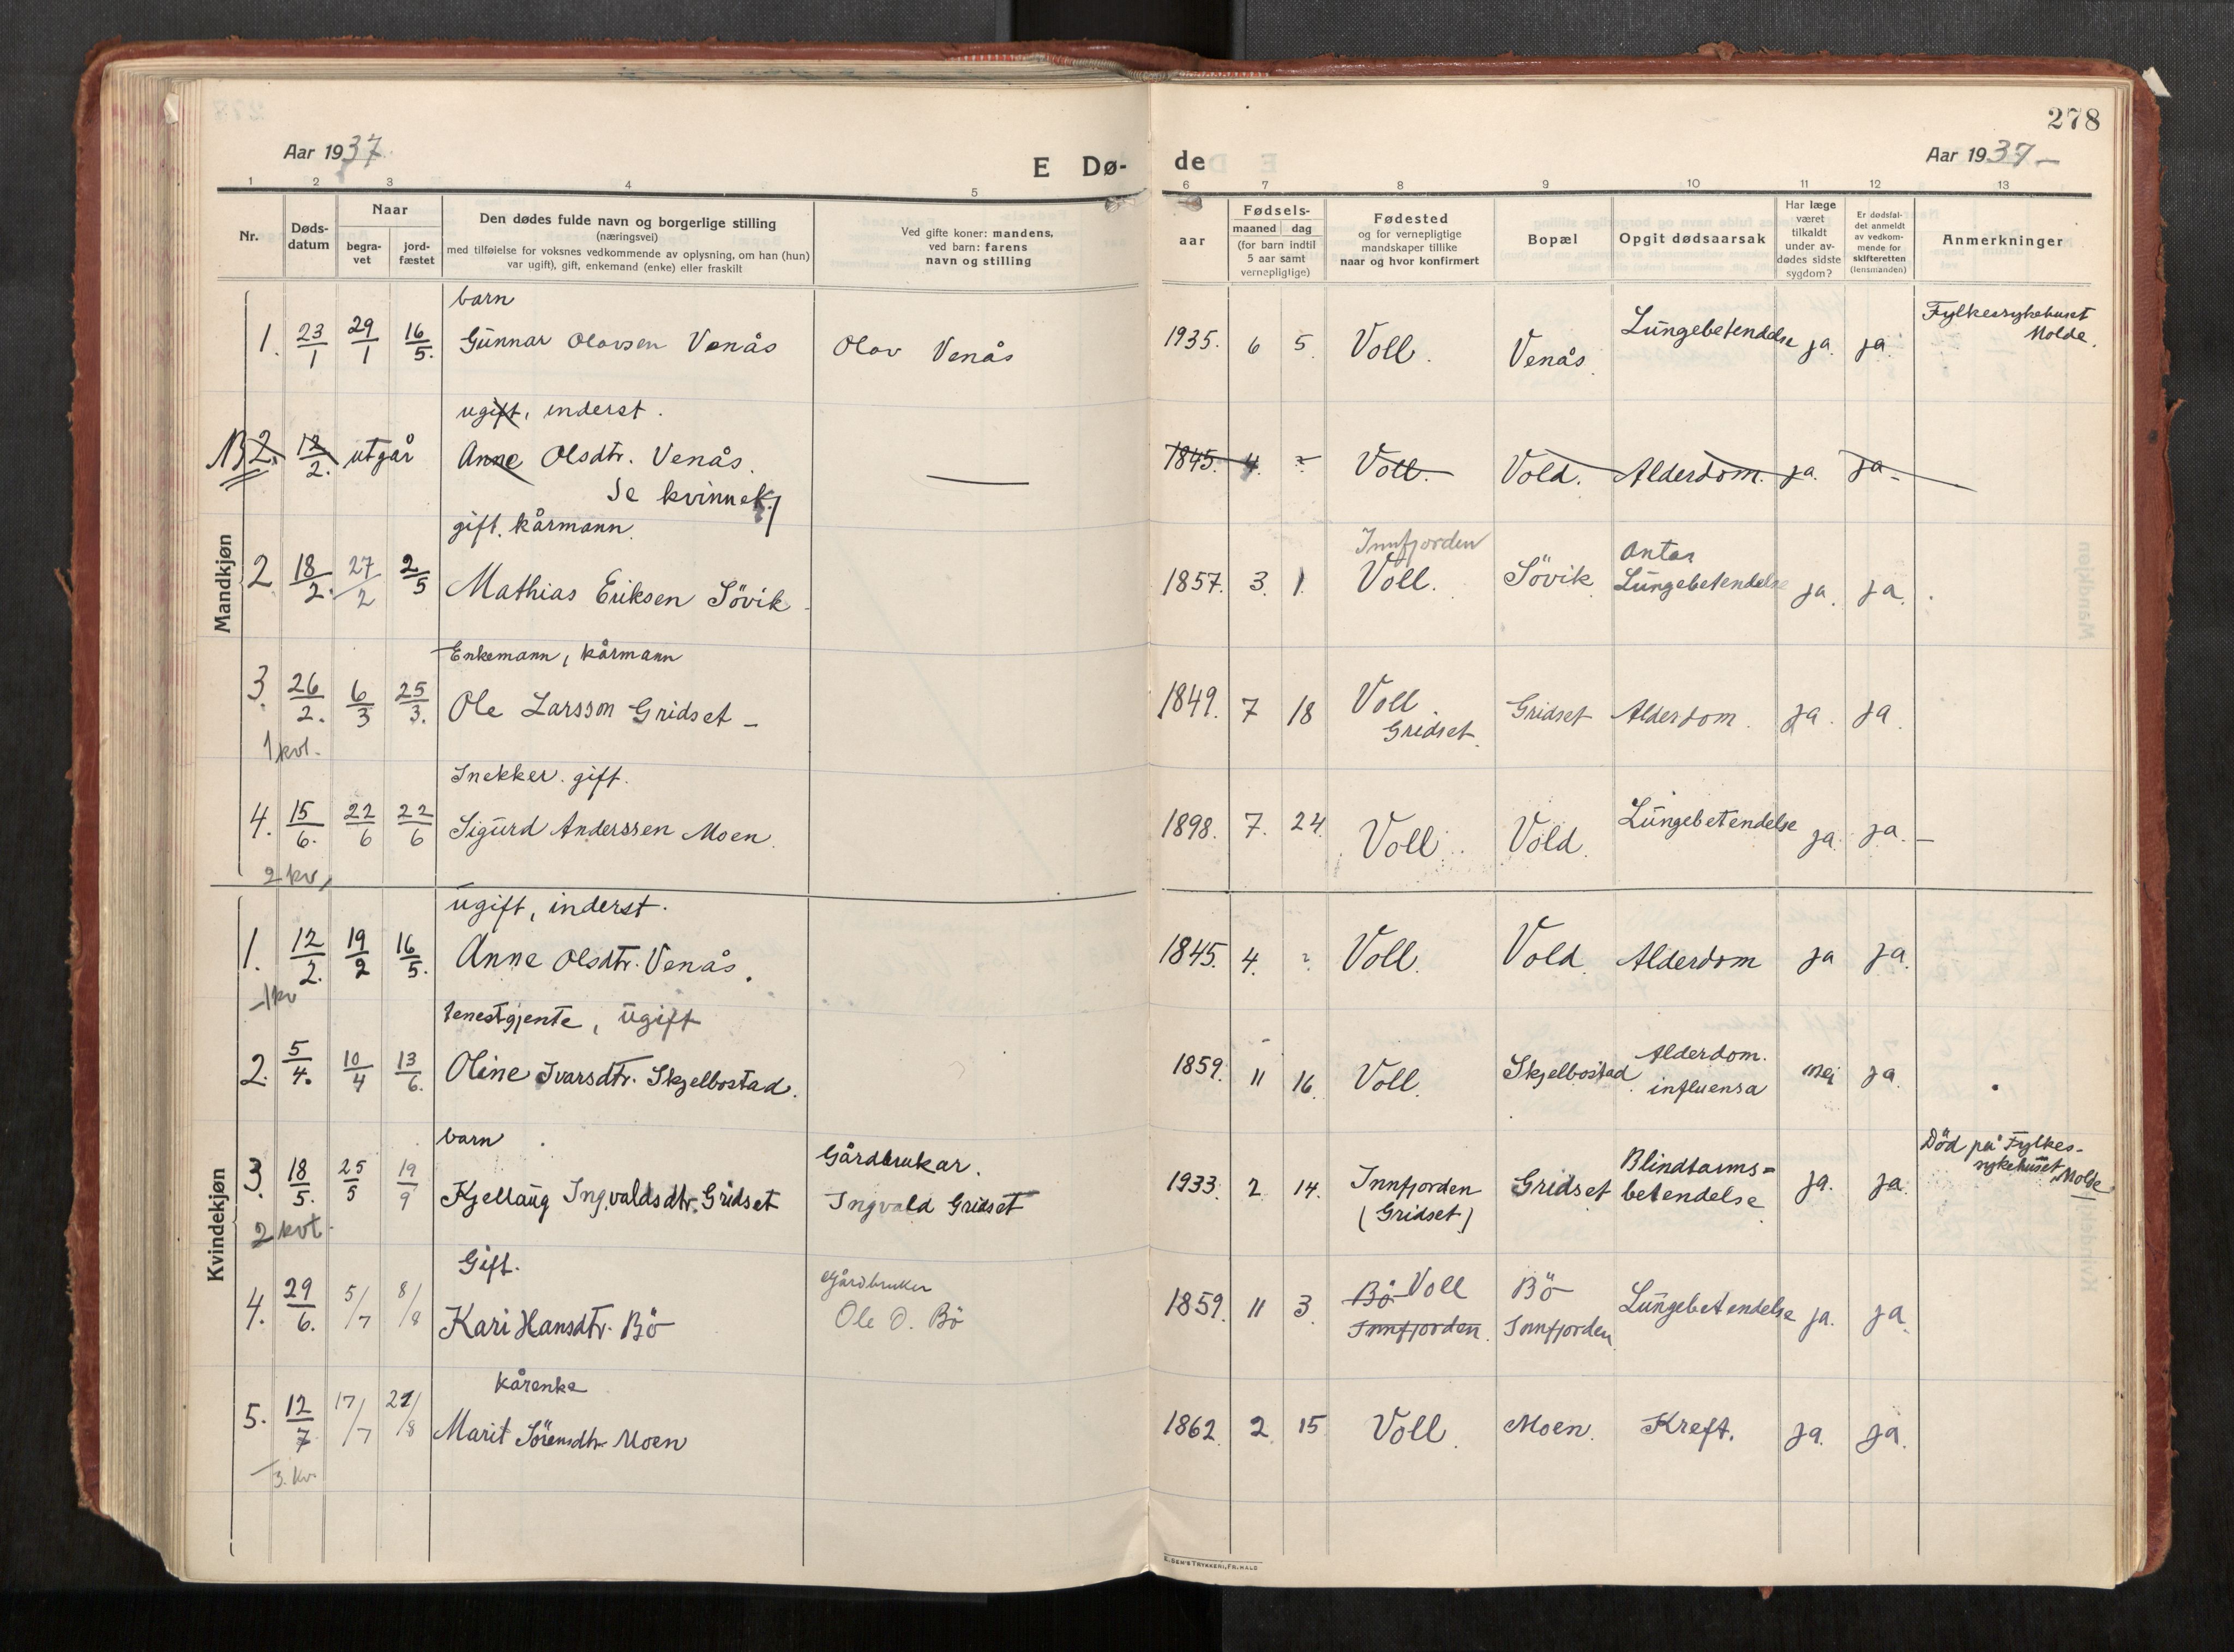 278
Aar 1937
E Dø-
de
Aar 1937 –
1 2 3 4 5 6 7 8 9 10 11 12 13
Nr.
Døds-
datum
Naar
begra-
vet
jord-
fæstet
Den dødes fulde navn og borgerlige stilling
(næringsvei)
med tilføielse for voksnes vedkommende av oplysning, om han (hun)
var ugift), gift, enkemand (enke) eller fraskilt
Ved gifte koner: mandens,
ved barn: farens
navn og stilling
aar
Fødsels-
maaned dag
(for barn indtil
5 aar samt
vernepligtige)
Fødested
og for vernepligtige
mandskaper tillike
naar og hvor konfirmert
Bopæl
Opgit dødsaarsak
Har læge
været
tilkaldt
under av-
dødes sidste
sygdom?
Er dødsfal-
det anmeldt
av vedkom-
mende for
skifteretten
(lensmanden)
Anmerkninger
Mandkjøn
barn
1. 23/1 29/1 16/5. Gunnar Olavsen Venås Olav Venås 1935. 6 5. Voll. Venås. Lungebetendelse ja. ja. Fylkessykehuset
Molde.
ugift, inderst.
2. 12/2. utgår Anne Olsdtr. Venås. — 1845. 4. ? Voll. Vold. Alderdom. ja. ja –
Se kvinnek.
gift. kårmann.
Innfjorden Antar
2 18/2. 27/2 2/5 Mathias Eriksen Sövik 1857. 3. 1. Voll. Sövik Lungebetendelse ja. ja.
Enkemann, kårmann
3. 26/2. 6/3 25/3. Ole Larsson Gridset – 1849. 7 18 Voll Gridset Alderdom. ja. ja.
Gridset.
1 kvt.
Snekker. gift.
4. 15/6. 22/6 22/6 Sigurd Anderssen Moen. 1898. 7. 24. Voll. Vold. Lungebetendelse ja. ja. –
2 kv.
Kvindekjøn
ugift, inderst.
1. 12/2. 19/2 16/5. Anne Olsdtr. Venås. 1845. 4. ? Voll. Vold. Alderdom ja ja.
1 kv
tenestgjente, ugift
2. 5/4. 10/4 13/6. Oline Ivarsdtr. Skjelbostad. 1859. 11 16. Voll. Skjelbostad Alderdom. nei ja.
influensa
barn Gårdbrukar.
3. 18/5. 25/5 19/9 Kjellaug Ingvaldsdtr. Gridset Ingvald Gridset 1933. 2. 14. Innfjorden Gridset Blindtarms= ja. ja. Død på Fylkes-
(Gridset) betendelse sykehuset Molde
2 kvt.
Gift. Gårdbruker
4. 29/6. 5/7 8/8 Kari Hansdtr. Bö Ole O. Bö 1859. 11 3. Bö Voll Bö Lungebetendelse ja. ja.
Innfjorden. Innfjorden
kårenke
5. 12/7 17/7 21/8 Marit Sörensdtr Moen 1862. 2. 15 Voll. Moen. Kreft. ja. ja.
3. kv.
E. SEM'S TRYKKERI, FR.HALD